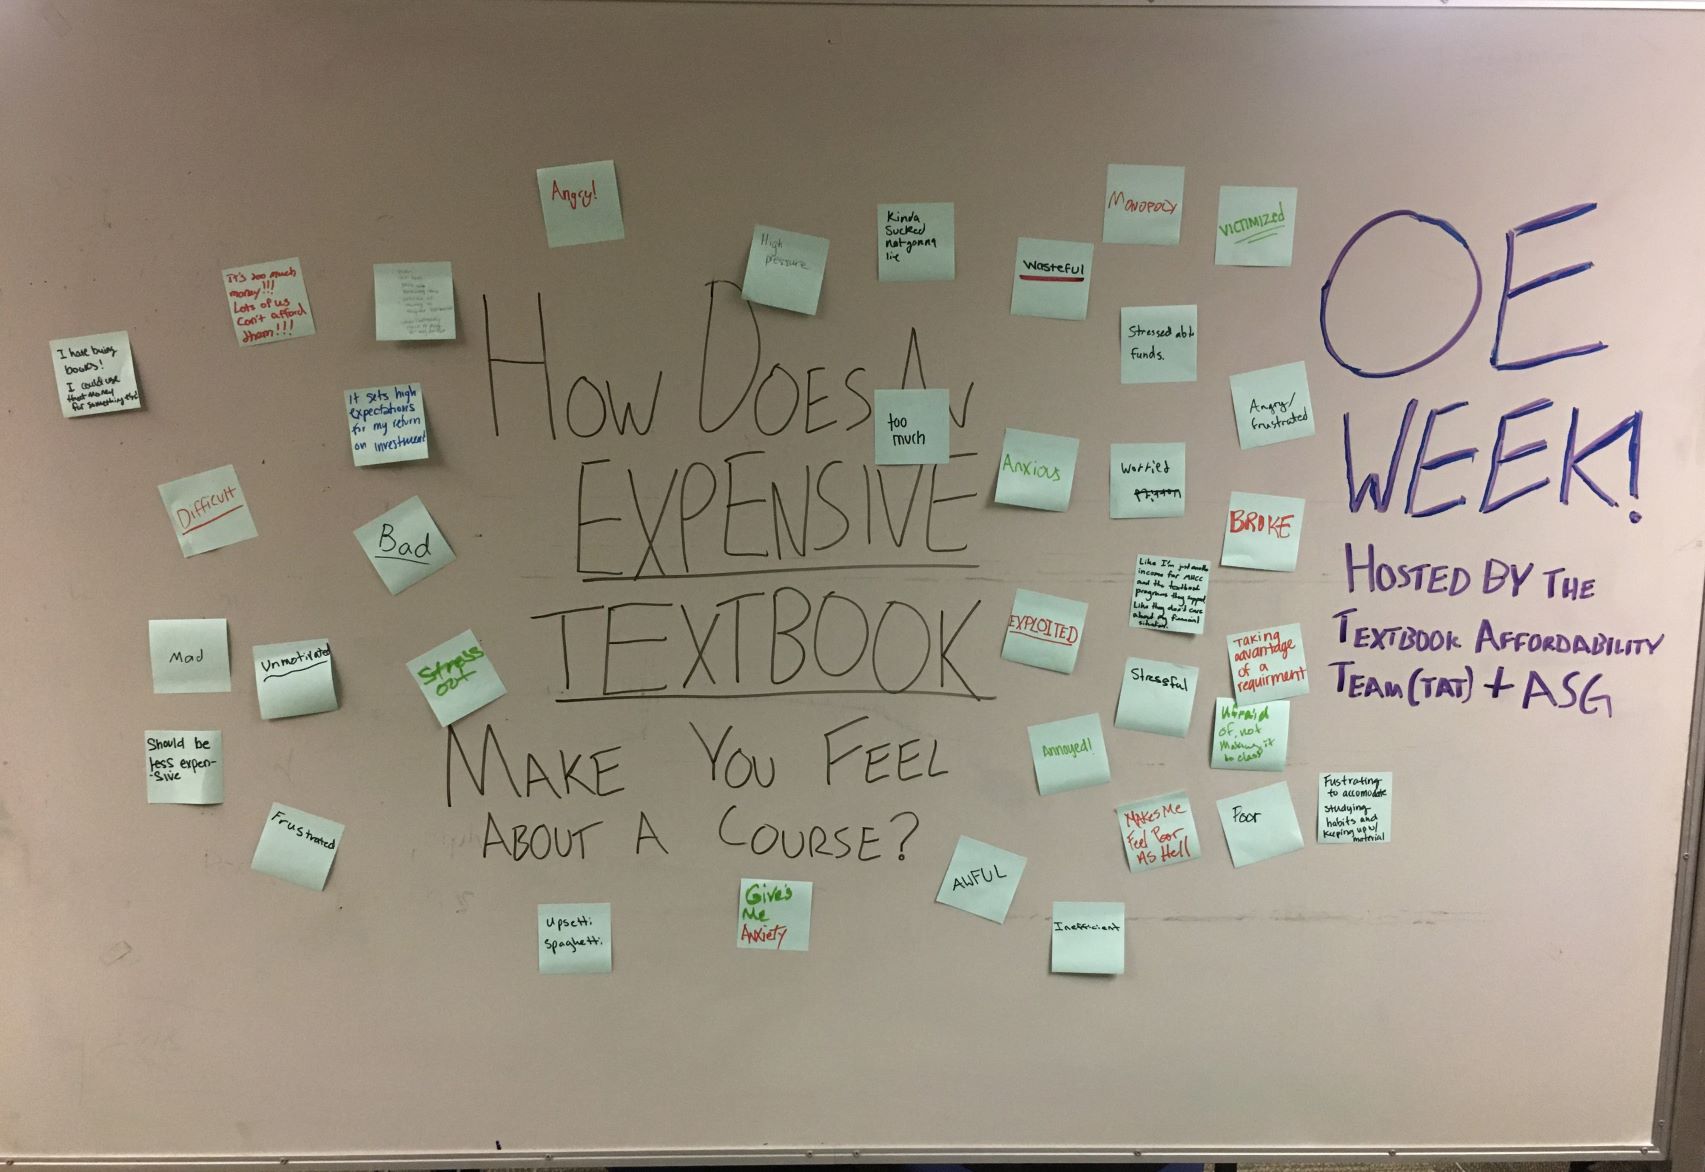 Angry!
High
pressure
Kinda
Sucked
not gonna
lie
Wasteful
MONOPOLY
VICTIMIZED
It's too much
money!!!
Lots of us
Can't afford
them!!!
I hate buing
books!
I could use
that money
for something else
It sets high
expectations
for my return
on investment
Difficult
Bad
Mad
Unmotivated
Stress
out
Should be
less expen-
-sive
Frustrated
HOW DOES AN
too
much
EXPENSIVE
TEXTBOOK
MAKE YOU FEEL
ABOUT A COURSE?
Upsetti
spaghetti
Give's
Me
Anxiety
AWFUL
Inefficient
Stressed abt
funds.
Angry/
frustrated
Anxious
Worried
BROKE
EXPLOITED
Like I'm just another
income for MHCC
and the textbook
programs they support
Like they don't care
about my financial
situation.
Taking
advantage
of a
requirment
Stressful
Afraid
of not
Making it
to class
Annoyed!
Makes Me
Feel Poor
As Hell
Poor
Fustrating
to accomodate
studying
habits and
keeping up w/
material
OE
WEEK!
HOSTED BY THE
TEXTBOOK AFFORDABILITY
TEAM (TAT) + ASG